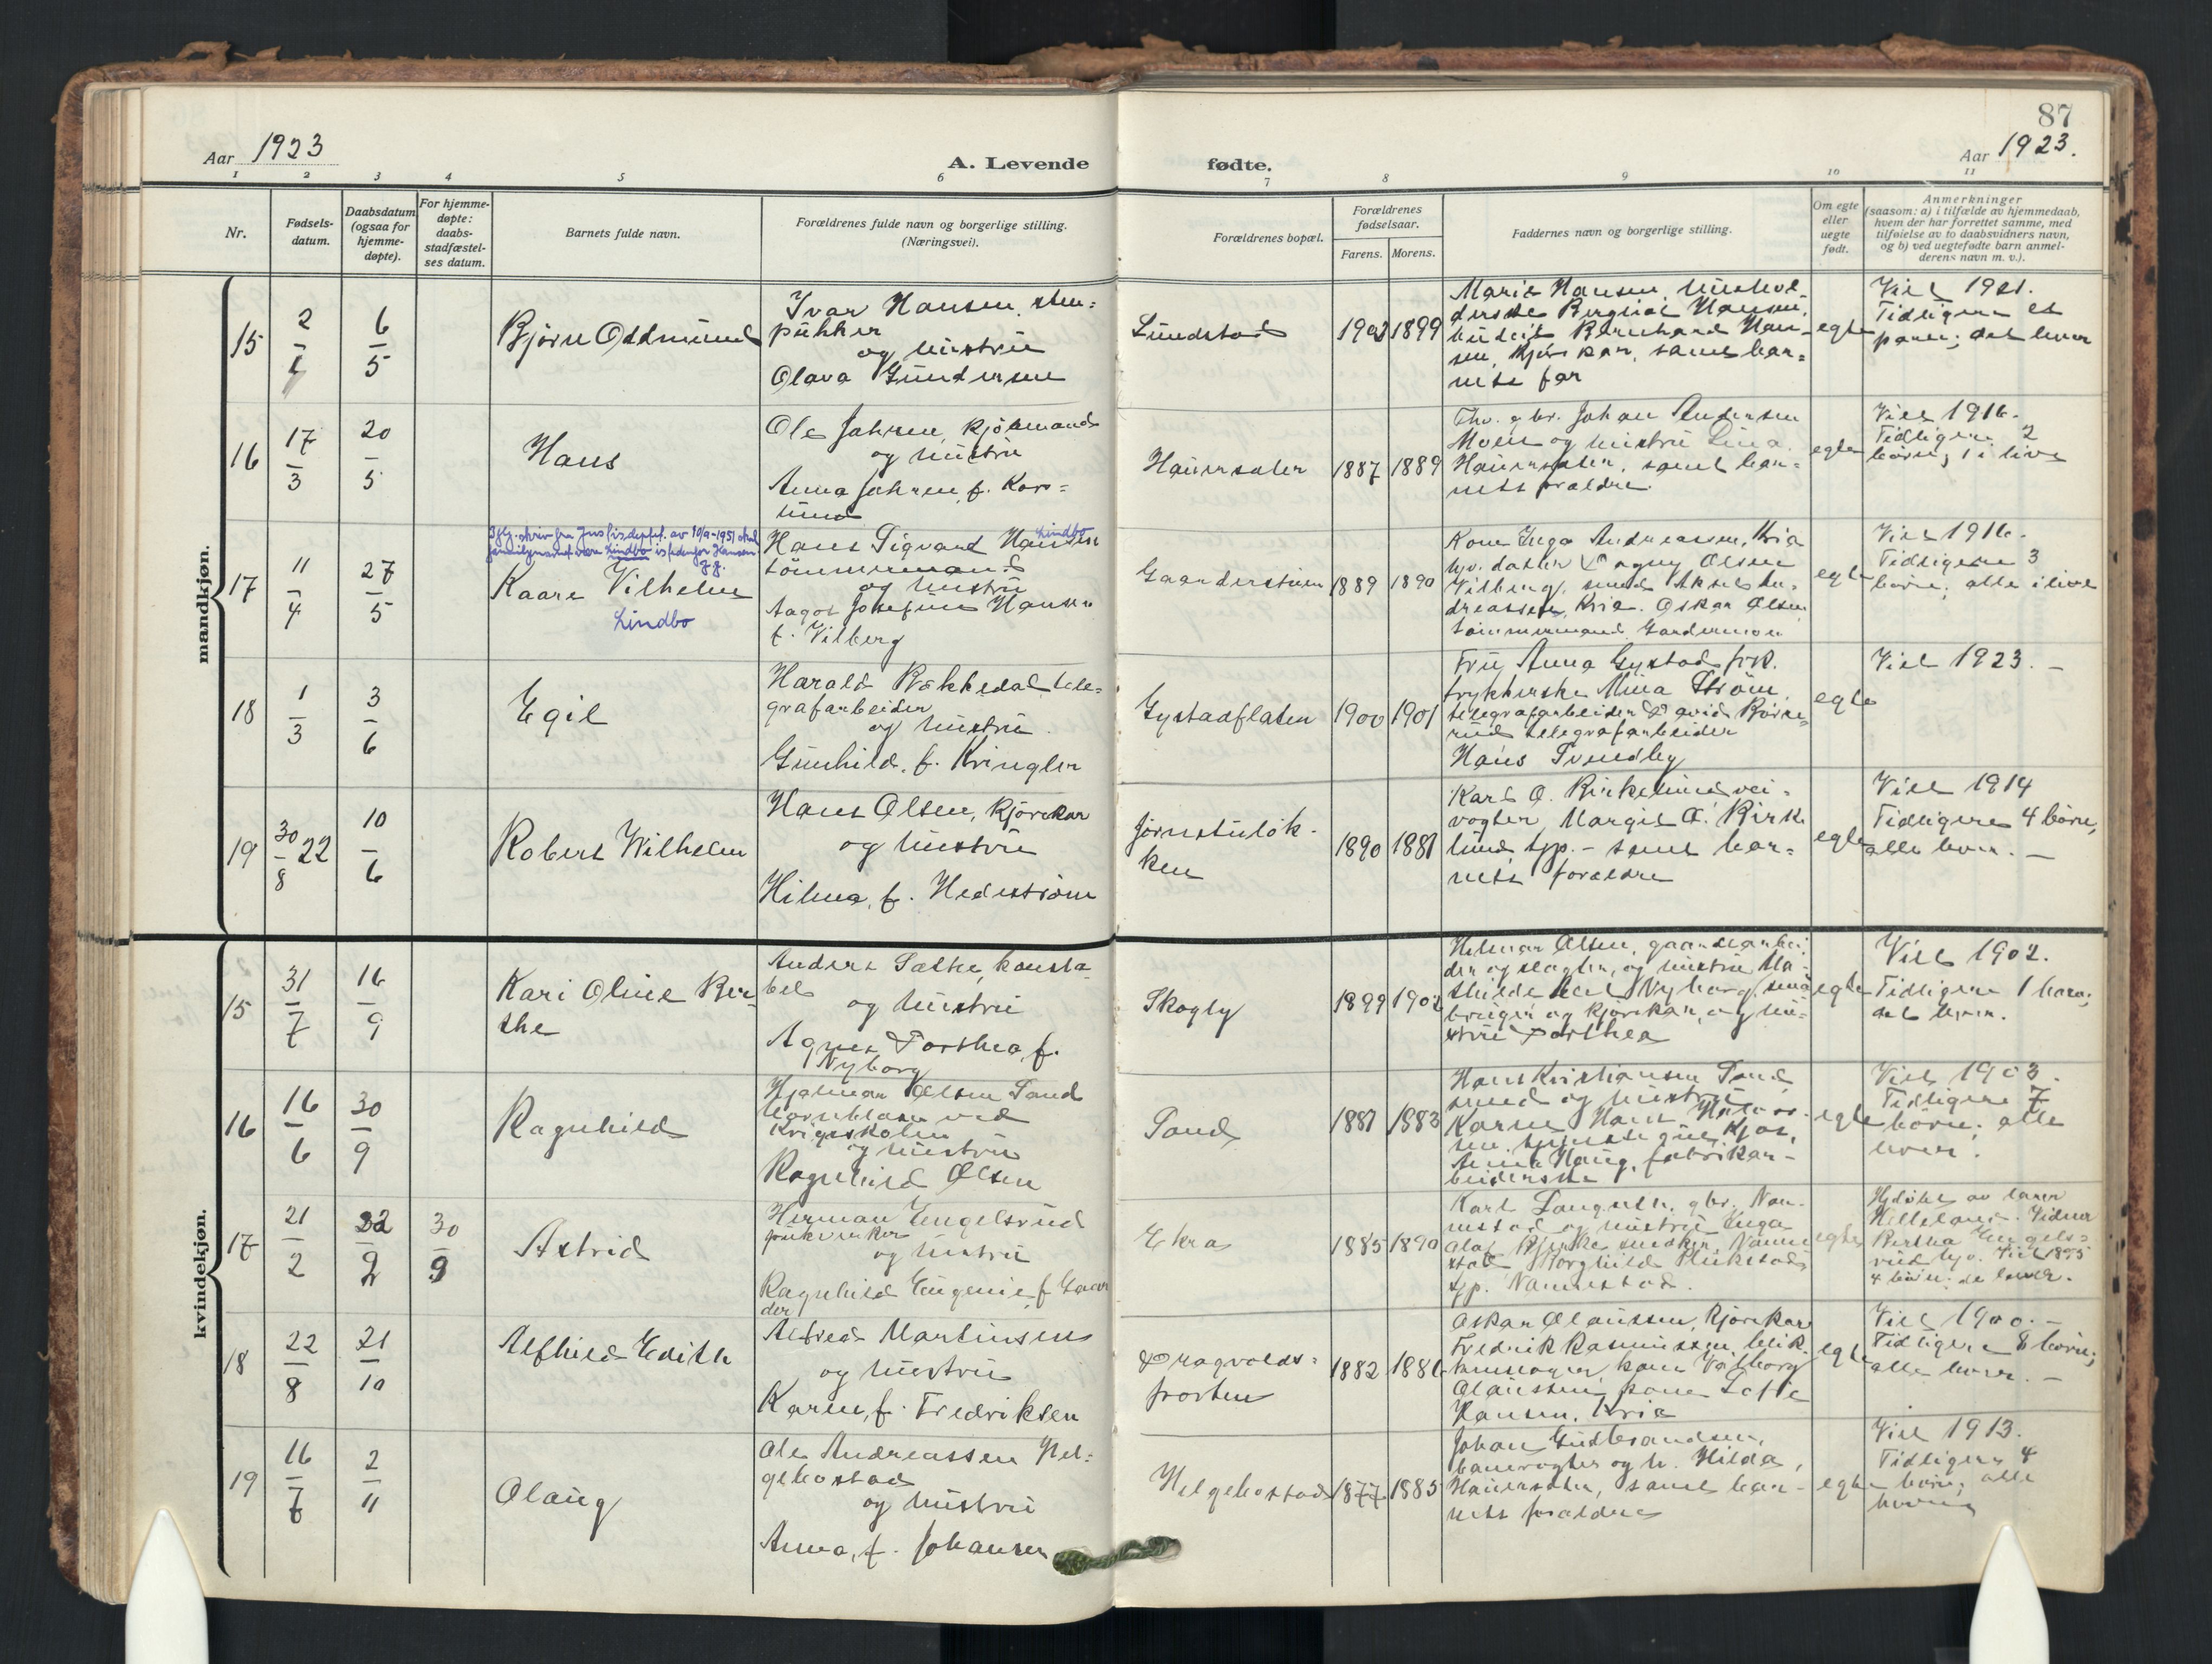 87
Aar 1923
A. Levende
fødte.
Aar 1923.
1 2 3 4 5 6 7 8 9 10 11
Nr.
Fødsels-
datum.
Daabsdatum
(ogsaa for
hjemme-
døpte).
For hjemme-
døpte:
daabs-
stadfæstel-
ses datum.
Barnets fulde navn.
Forældrenes fulde navn og borgerlige stilling.
(Næringsvei).
Forældrenes bopæl.
Forældrenes
fødselsaar.
Farens. Morens.
Faddernes navn og borgerlige stilling.
Om egte
eller
uegte
født.
Anmerkninger
(saasom: a) i tilfælde av hjemmedaab,
hvem der har forrettet samme, med
tilføielse av to daabsvidners navn,
og b) ved uegtefødte barn anmel-
derens navn m. v.).
mandkjøn.
15
2
6
5
Bjørn Oddmund
Ivar Hansen, sten=
pukker
og hustru
Olava Gundersen
Lundstad
1899
Marie Hansen, hushol-
derske
Hansen,
Bernhard Han-
sen, kjørekar, samt bar=
nets far
egte
Viet 1921.
Tidligere et
barn; det lever
16
17
3
20
5
Hans
Ole Jahren, kjøbmand
og hustru
Anna Jahren, f. Kors=
lund
Hauersæter
1887 1889
Johan Andersen
Moen og hustru Lina
Hauersæter, samt bar=
nets forældre.
egte
Viet 1916.
Tidligere 2
børn; 1 i live
17
11
4
27
5
av 10/9-1951 skal
familienavnet være Lindbo istedenfor Hansen.
Kaare Vilhelm
Lindbo
Hans Sigvard Hansen
Lindbo
tømmermand
og hustru
Aagot Josefine Hansen
f. Vilberg
1889 1890
Kone Inga Andreassen, Kria
Dagny Olsen
Vilberg, smed Aksel An-
dreassen, Kria. Oskar Olsen
tømmermand Gardermoen
egte
Viet 1916.
Tidligere 3
børn; alle i live
18
1
3
3
6
Egil
Harald Bækkedal tele=
grafarbeider
og hustru
Gunhild, f. Kringler
Gystadflaten
1900 1901
Fru Anna Gystad
Mina Strøm,
telegrafarbeider
telegrafarbeider
Hans Tveudby
egte
Viet 1923. –
19
30
8
22
10
6
Robert Wilhelm
Hans Olsen, kjørekar
og hustru
Hilma, f. Hedestrøm
Jørnstuløk-
ken
1890 1881
Karl O. Birkelund vei-
vogter, Margit O. Birke
lund tjp. – samt bar=
nets forældre
egte
Viet 1914
Tidligere 4 børn,
alle lever. –
kvindekjøn.
15
31
7
16
9
Kari Oline Ber-
the
Anders Sæthe, konsta-
bel
og hustru
Agnes Dorthea, f.
Nyborg
Skogly
1899 1902
Helmar Olsen, gaardsarbei-
der og slagter, og hustru Ma-
thilde. Karl Nyborg, små
bruger og kjørekar, og hu=
stru Dorthea
egte
Viet 1902.
Tidligere 1 barn;
det lever.
16
16
6
30
9
Ragnhild
Hjalmar Olsen Sand
hornblåser ved
Krigsskolen
og hustru
Ragnhild Olsen
Sand
1881 1883
Hans Kristiansen Sand
smed og hustru
Karen
Anna Haug, fabrikar-
beiderske
egte
Viet 1903.
Tidligere 7
børn; alle
lever.
17
21
2
22
2
30
9
Astrid
Herman Engelsrud
og hustru
Ragnhild Eugenie f. Gaar
der
Ekra
1885 1890
Karl Langseth, gbr. Nan-
nestad og hustru Inga
Olaf Bjerke
Nanne
stad
tjp. Nannestad.
egte
Hjdøbt av lærer
Helleland. Vidner
Bertha Engels=
rud
4 børn: de lever.
18
22
8
21
10
Alfhild Edith
Alfred Martinsen
og hustru
Karen, f. Fredriksen
Dragvolds=
porten
1882
Oskar Olaussen, kjørekar
Fredrik Rasmussen, blik-
kenslager, kone Valborg
Olaussen, kone Lotte
Hansen, Kria
egte
Viet 1900. –
Tidligere 8 børn;
alle lever. –
19
16
7
2
11
Olaug
Ole Andreassen Hel=
gebostad
og hustru
Anna, f. Johansen
Helgebostad
1877 1885
Johan Gudbrandsen,
banevogter og h. Hilda,
Hauersæter, samt bar-
nets forældre
egte
Viet 1913.
Tidligere 4
børn; alle
lever